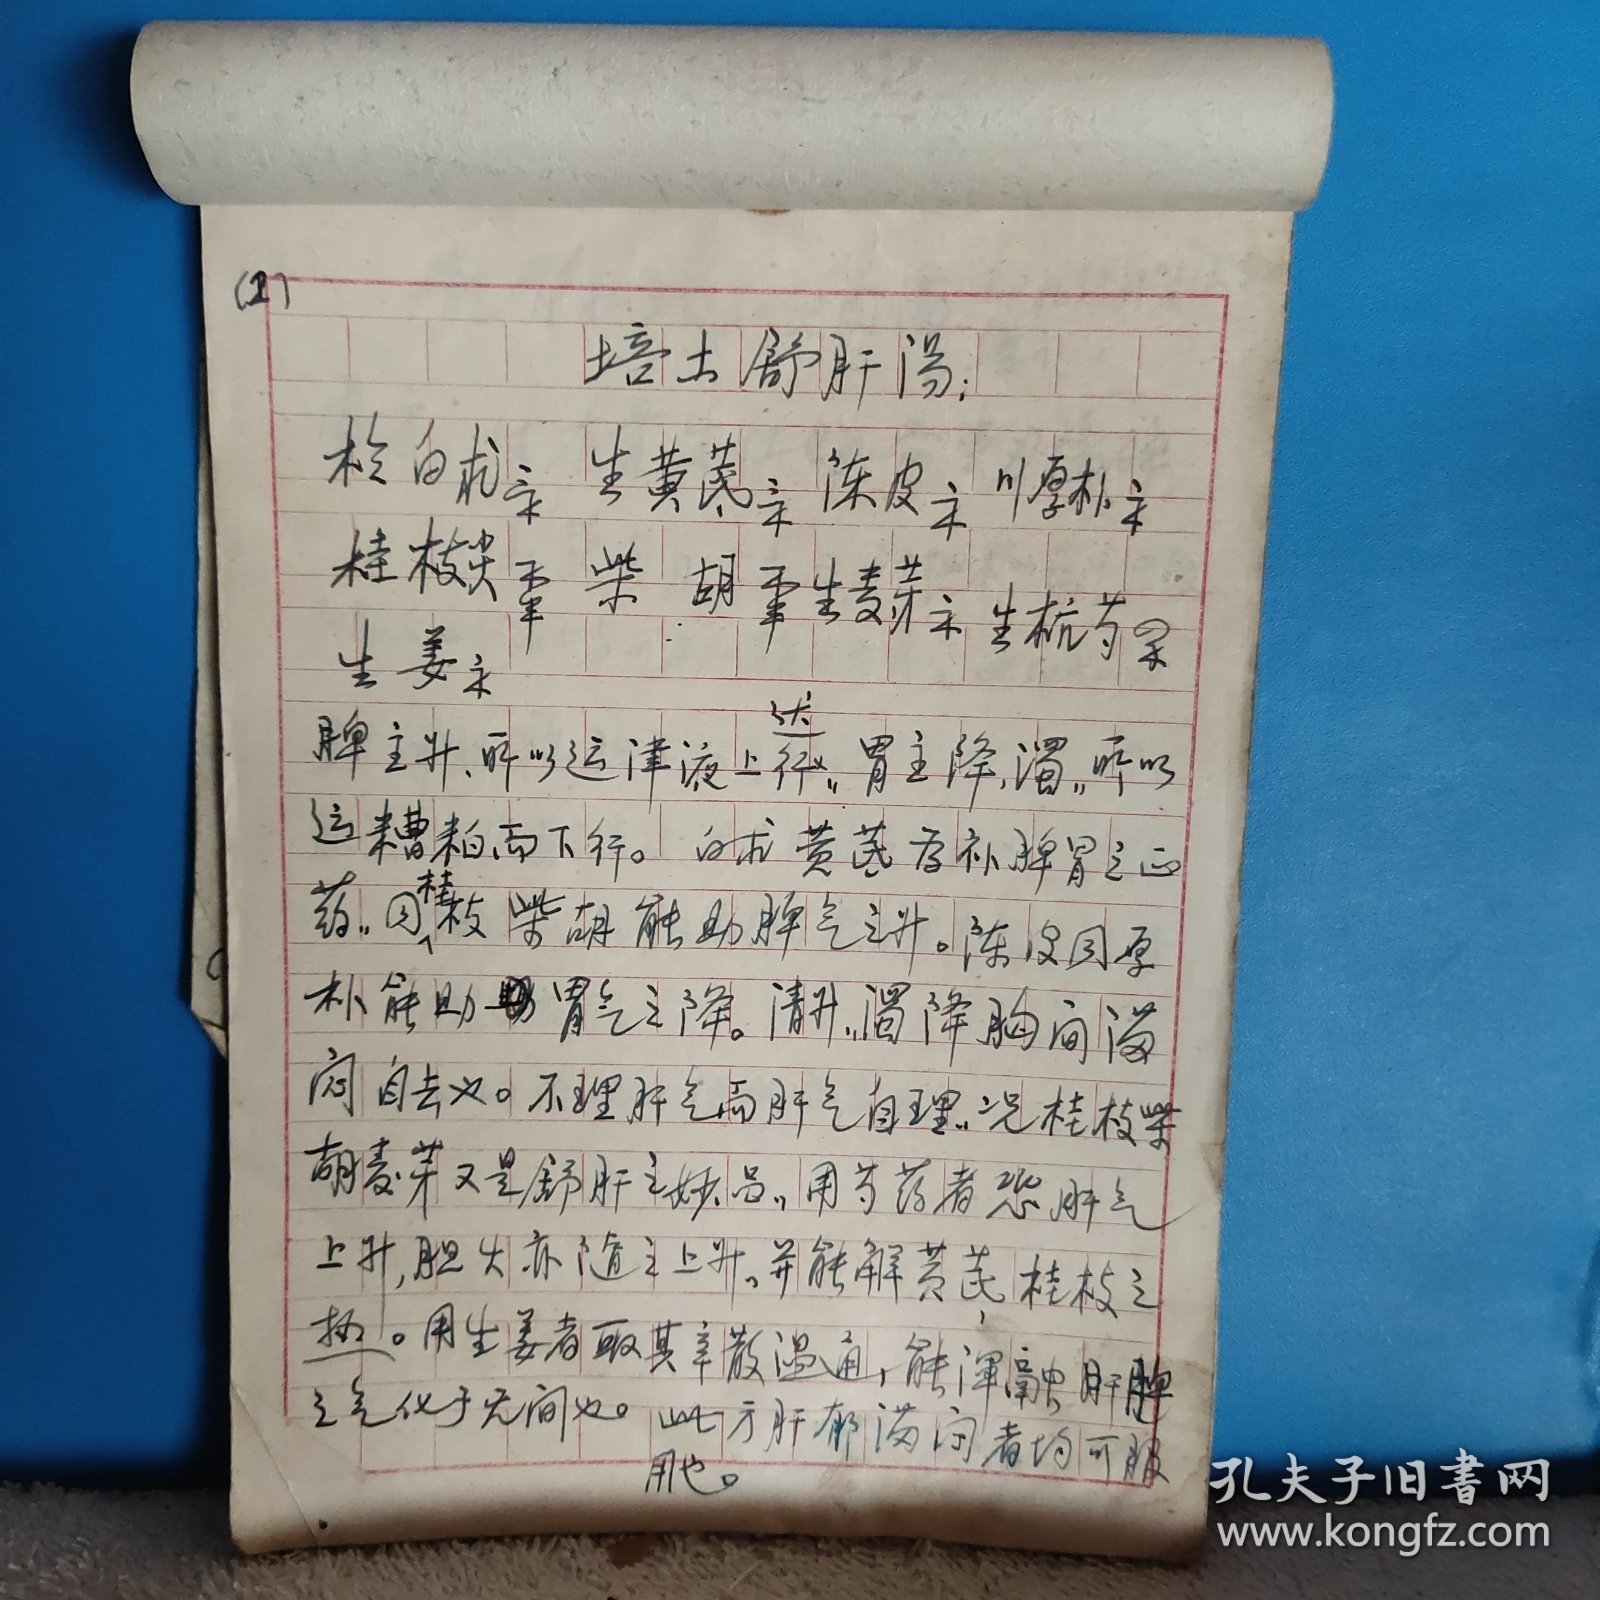 (1)
培土舒肝汤:
桧白术 生黄芪 陈皮 川厚朴
桂枝尖 柴胡 生麦芽 生杭芍
生姜
脾主升、所以运津液上行达,,胃主降,浊,,所以
运糟粕而下行。白术黄芪为补脾胃之正
药,,同桂枝柴胡能助脾气之升。陈皮同厚
朴能助胃气之降。清升,,浊降胸间满
闷自去也。不理肝气而肝气自理,,况桂枝柴
胡麦芽又是舒肝之妙品,,用芍药者恐肝气
上升,胆火亦随之上升,并能解黄芪,桂枝之
热。用生姜者取其辛散温通,能浑融肝脾
之气化于无间也。此方肝郁满闷者均可服
用也。
孔夫子旧书网
www.kongfz.com